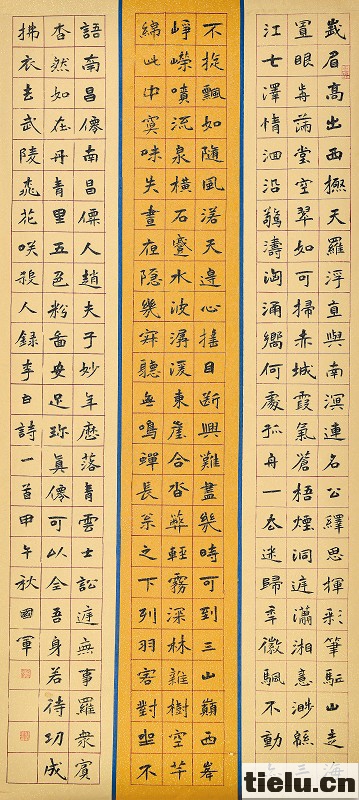 峩眉高出西極天羅浮直與南溟連名公繹思揮彩筆駈山走海
置眼歬滿堂空翠如可掃赤城霞氣蒼梧煙洞庭瀟湘意渺緜三
江七澤情洄沿驚濤洶涌嚮何處孤舟一去迷歸年徵颿不動亦
不旋飄如隨風落天邊心搖目斷興難盡幾時可到三山巔西峯
崢嶸噴流泉橫石蹙水波潺湲東崖合沓蔽輕霧深林雜樹空芊
綿此中冥昧失晝夜隱幾寂聽無鳴蟬長枀之下列羽客對坐不
語南昌僊南昌僊人趙夫子妙年歷落青雲士訟庭無事羅衆賓
杳然如在丹青里五色粉啚安足珎真僊可以全吾身若待功成
拂衣去武陵桃花咲殺人録李白詩一首甲午秋國軍
tielu.cn